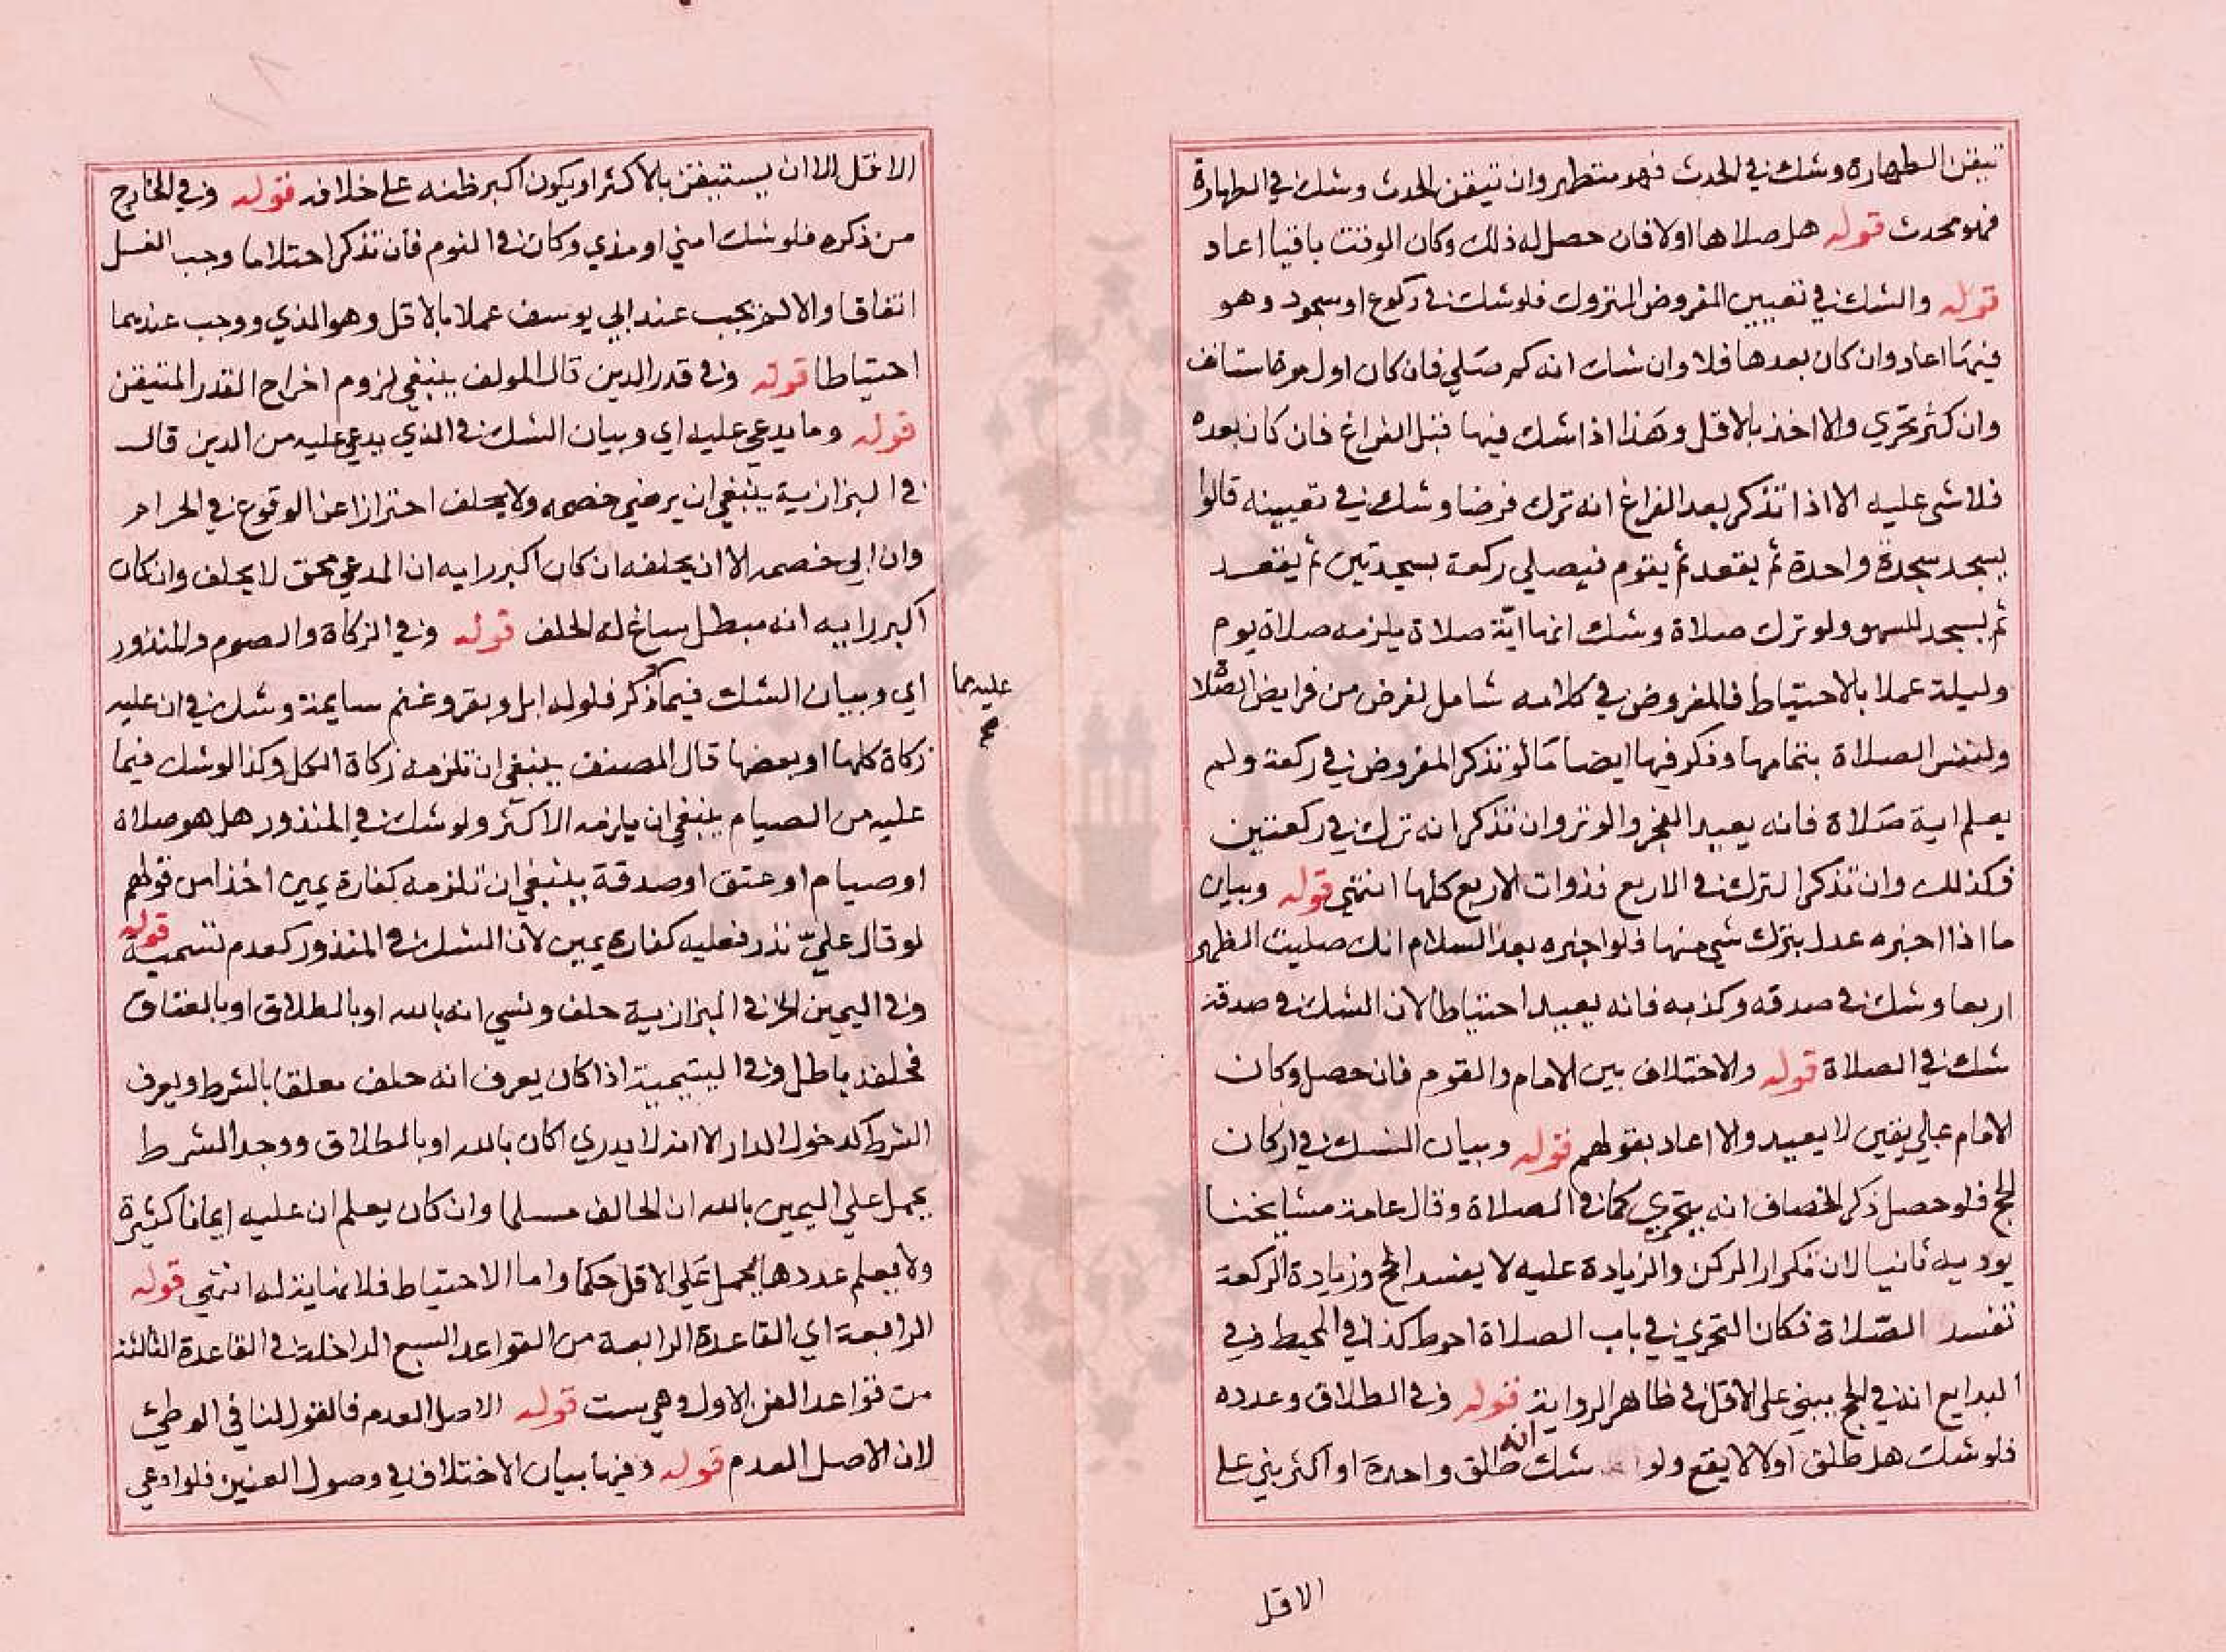 تيقن الطهارة وشك في الحدث فهو متطهر وان تيقن الحدث وشك في الطهارة
فهو محدث قوله هل صلاها اولا فان حصل له ذلك وكان الوقت باقيا اعاد
قوله والشك في تعيين المفروض المتروك فلو شك في ركوع او سجود وهو
فيها اعاد وان كان بعدها فلا وان شك انه كم صلي فان كان اول مرة استانف
وان كثر تحري والا اخذ بالاقل وهذا اذا شك فيها قبل الفراغ فان كان بعده
فلا شي عليه الا اذا تذكر بعد الفراغ انه ترك فرضا وشك في تعيينه قالوا
يسجد سجدة واحدة ثم يقعد ثم يقوم فيصلي ركعة بسجدتين ثم يقعد
ثم يسجد للسهو ولو ترك صلاة وشك انها اية صلاة يلزمه صلاة يوم
وليلة عملا بالاحتياط فالمفروض في كلامه شامل لفرض من فرايض الصلاة
ولنفس الصلاة بتمامها وفكر فيها ايضا ما لو تذكر المفروض في ركعة ولم
يعلم اية صلاة فانه يعيد الفجر والوتر وان تذكر انه ترك في ركعتين
فكذلك وان تذكر الترك في الاربع فذوات الاربع كلها انتهي قوله وبيان
ما اذا اخبره عدل بترك شي منها فلو اخبره بعد السلام انك صليت الظهر
اربعا وشك في صدقه وكذبه فانه يعيد احتياطا لان الشك في صدقه
شك في الصلاة قوله والاختلاف بين الامام والقوم فان حصل وكان
الامام علي يقين لا يعيد والا اعاد بقولهم قوله وبيان الشك في اركان
الحج فلو حصل ذكر الخصاف انه يتحري كما في الصلاة وقال عامة مشايخنا
يوديه ثانيا لان تكرار الركن والزيادة عليه لا يفسد الحج وزيادة الركعة
تفسد الصلاة فكان التحري في باب الصلاة احوط كذا في المحيط وفي
البدايع انه في الحج يبني علي الاقل في ظاهر الرواية قوله وفي الطلاق وعدده
فلو شك هل طلق اولا لا يقع ولو شك انه طلق واحدة او اكثر بني علي
الاقل
الاقل الا ان يستيقن بالاكثر او يكون اكبر ظنه علي خلافه قوله وفي الخارج
من ذكره فلو شك امني او مذي وكان في النوم فان تذكر احتلاما وجب الغسل
اتفاقا والا لم يجب عند ابي يوسف عملا بالاقل وهو المذي ووجب عندهما
احتياطا قوله وفي قدر الدين قال المولف ينبغي لزوم اخراج القدر المتيقن
قوله وما يدعي عليه اي وبيان الشك في الذي يدعي عليه من الدين قال
في البزازية ينبغي ان يرضي خصمه ولا يحلف احترازا عن الوقوع في الحرام
وان ابي خصمه الا ان يحلفه ان كان اكبر رايه ان المدعي محق لا يحلف وان كان
اكبر رايه انه مبطل ساغ له الحلف قوله وفي الزكاة والصوم والمنذور
اي وبيان الشك فيما ذكر فلو له ابل وبقر وغنم سايمة وشك في ان عليه
عليهما صح
زكاة كلها او بعضها قال المصنف ينبغي ان تلزمه زكاة الكل وكذا لو شك فيما
عليه من الصيام ينبغي ان يلزمه الاكثر ولو شك في المنذور هل هو صلاة
او صيام او عتق او صدقة ينبغي ان تلزمه كفارة يمين اخذا من قولهم
لو قال علي نذر فعليه كفارة يمين لان الشك في المنذور كعدم تسميته قوله
وفي اليمين الخ في البزازية حلف ونسي انه بالله او بالطلاق او بالعتاق
فحلفه باطل وفي اليتيمية اذا كان يعرف انه حلف معلقا بالشرط ويعرف
الشرط كدخول الدار الا انه لا يدري اكان بالله او بالطلاق ووجد الشرط
يحمل علي اليمين بالله ان الحالف مسلما وان كان يعلم ان عليه ايمانا كثيرة
ولا يعلم عددها يحمل علي الاقل حكما واما الاحتياط فلا نهاية له انتهي قوله
الرابعة اي القاعدة الرابعة من القواعد السبع الداخلة في القاعدة الثالثة
من قواعد الفن الاول وهي ست قوله الاصل العدم فالقول لنافي الوطيء
لان الاصل العدم قوله وفيها بيان الاختلاف في وصول العنين فلو ادعي